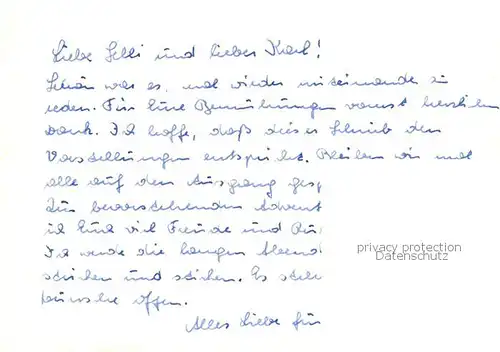 Liebe Lilli und lieber Karl!
Schön war es, mal wieder miteinander zu
reden. Für Eure Bemühungen vorerst herzlichen
Dank. Ich hoffe, daß dieser Schrieb den
Vorstellungen entspricht. Bleiben wir mal
alle auf den Ausgang gesp
Zum bevorstehenden Advent
ich Euch viel Freude und
Ich werde die langen Abend
stricken und sticken. Es
Wünsche offen.
Alles Liebe für
privacy protection
Datenschutz